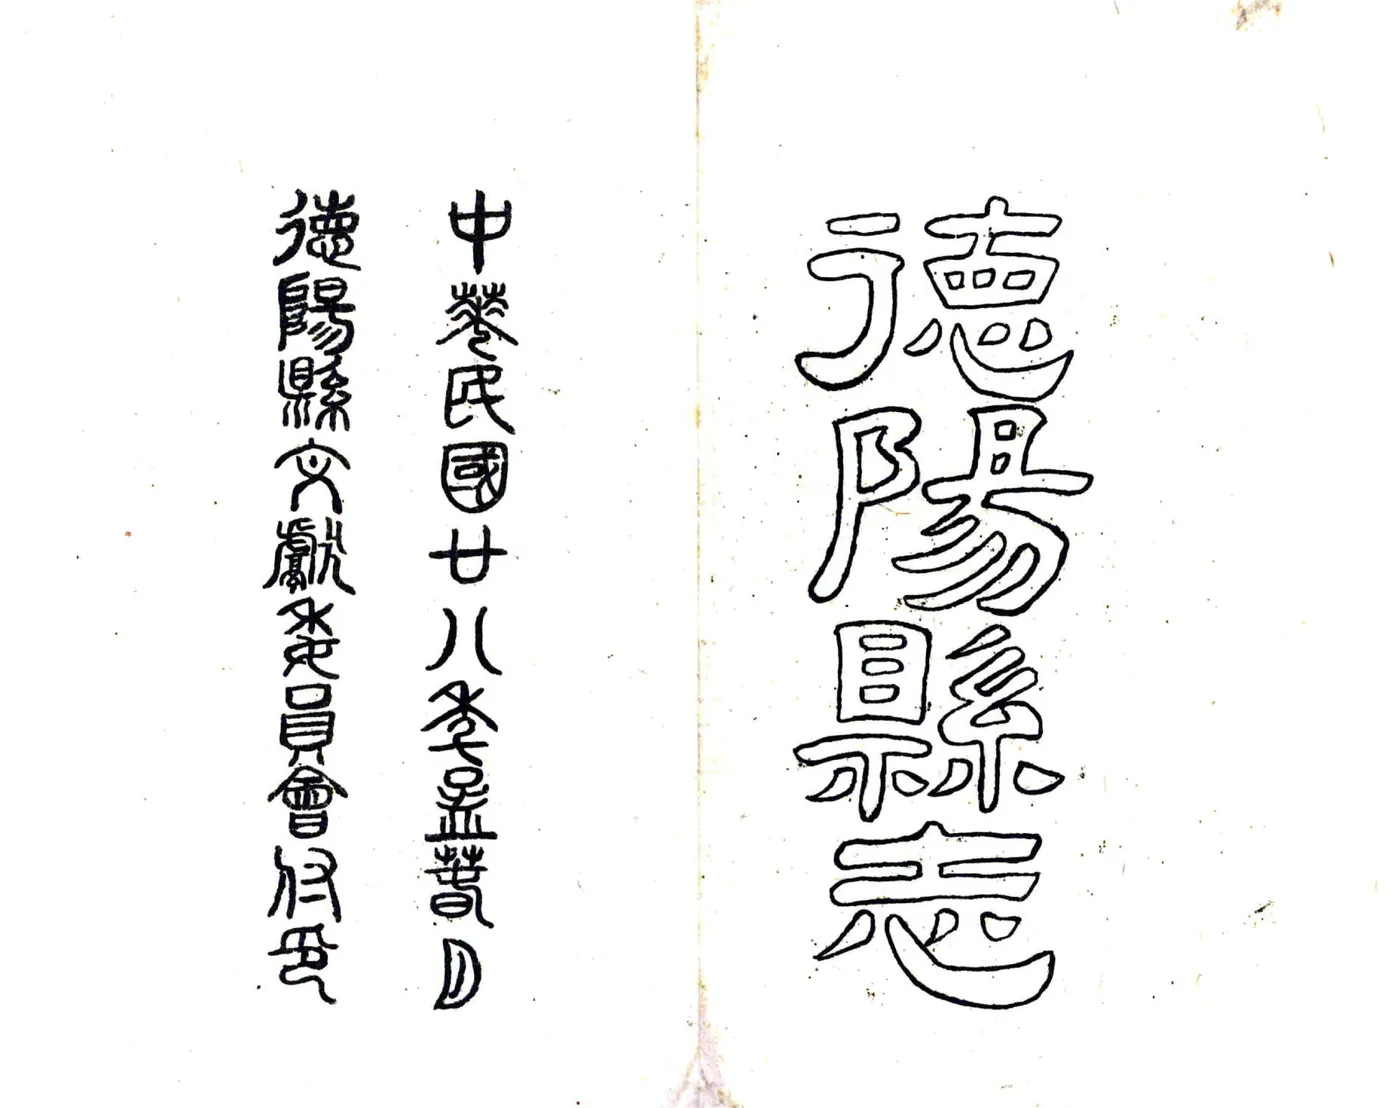 德陽縣志
中華民國廿八季孟春月
德陽縣文獻委員會付印